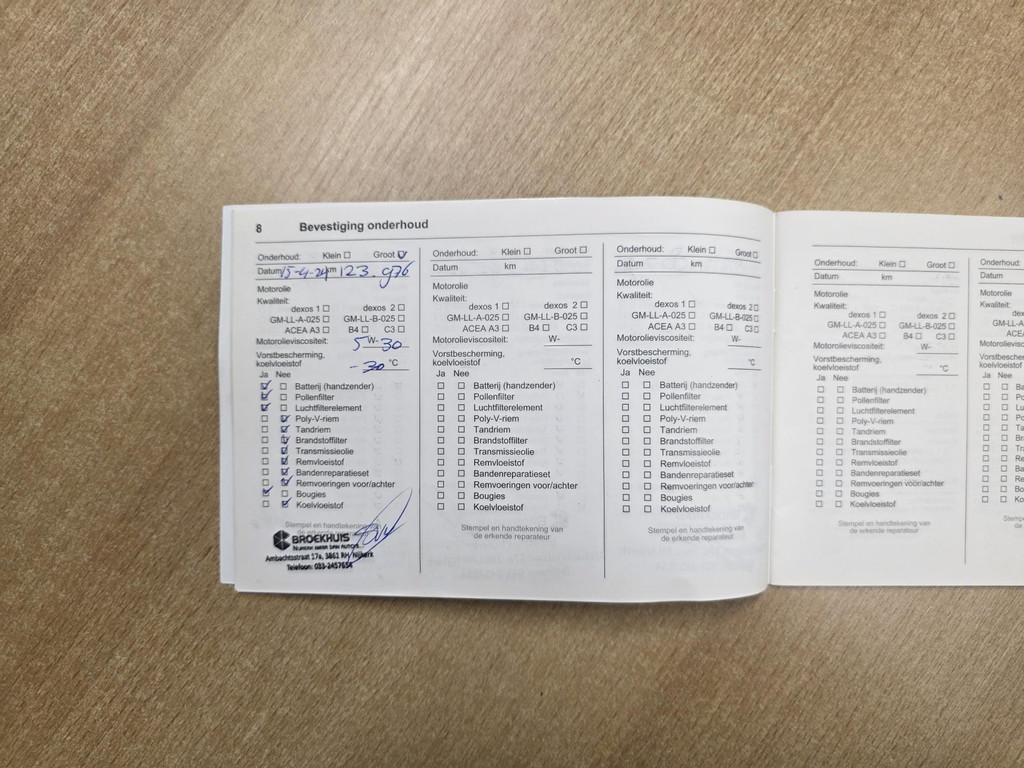 8 Bevestiging onderhoud
Onderhoud: Klein ☐ Groot ☑
Datum 15-4-24 km 123.976
Motorolie
Kwaliteit:
dexos 1 ☐ dexos 2 ☐
GM-LL-A-025 ☐ GM-LL-B-025 ☐
ACEA A3 ☐ B4 ☐ C3 ☐
Motorolieviscositeit: 5 W- 30
Vorstbescherming,
koelvloeistof -30 °C
Ja Nee
☑ ☐ Batterij (handzender)
☑ ☐ Pollenfilter
☑ ☐ Luchtfilterelement
☐ ☑ Poly-V-riem
☐ ☑ Tandriem
☐ ☑ Brandstoffilter
☐ ☑ Transmissieolie
☐ ☑ Remvloeistof
☐ ☑ Bandenreparatieset
☐ ☑ Remvoeringen voor/achter
☑ ☐ Bougies
☐ ☑ Koelvloeistof
Stempel en handtekening van
BROEKHUIS
Ambachtsstraat 17a, 3861 RH Nijkerk
Telefoon: 033-2457654
Onderhoud: Klein ☐ Groot ☐
Datum km
Motorolie
Kwaliteit:
dexos 1 ☐ dexos 2 ☐
GM-LL-A-025 ☐ GM-LL-B-025 ☐
ACEA A3 ☐ B4 ☐ C3 ☐
Motorolieviscositeit: W-
Vorstbescherming,
koelvloeistof °C
Ja Nee
☐ ☐ Batterij (handzender)
☐ ☐ Pollenfilter
☐ ☐ Luchtfilterelement
☐ ☐ Poly-V-riem
☐ ☐ Tandriem
☐ ☐ Brandstoffilter
☐ ☐ Transmissieolie
☐ ☐ Remvloeistof
☐ ☐ Bandenreparatieset
☐ ☐ Remvoeringen voor/achter
☐ ☐ Bougies
☐ ☐ Koelvloeistof
Stempel en handtekening van
de erkende reparateur
Onderhoud: Klein ☐ Groot ☐
Datum km
Motorolie
Kwaliteit:
dexos 1 ☐ dexos 2 ☐
GM-LL-A-025 ☐ GM-LL-B-025 ☐
ACEA A3 ☐ B4 ☐ C3 ☐
Motorolieviscositeit: W-
Vorstbescherming,
koelvloeistof °C
Ja Nee
☐ ☐ Batterij (handzender)
☐ ☐ Pollenfilter
☐ ☐ Luchtfilterelement
☐ ☐ Poly-V-riem
☐ ☐ Tandriem
☐ ☐ Brandstoffilter
☐ ☐ Transmissieolie
☐ ☐ Remvloeistof
☐ ☐ Bandenreparatieset
☐ ☐ Remvoeringen voor/achter
☐ ☐ Bougies
☐ ☐ Koelvloeistof
Stempel en handtekening van
de erkende reparateur
Onderhoud: Klein ☐ Groot ☐
Datum km
Motorolie
Kwaliteit:
dexos 1 ☐ dexos 2 ☐
GM-LL-A-025 ☐ GM-LL-B-025 ☐
ACEA A3 ☐ B4 ☐ C3 ☐
Motorolieviscositeit: W-
Vorstbescherming,
koelvloeistof °C
Ja Nee
☐ ☐ Batterij (handzender)
☐ ☐ Pollenfilter
☐ ☐ Luchtfilterelement
☐ ☐ Poly-V-riem
☐ ☐ Tandriem
☐ ☐ Brandstoffilter
☐ ☐ Transmissieolie
☐ ☐ Remvloeistof
☐ ☐ Bandenreparatieset
☐ ☐ Remvoeringen voor/achter
☐ ☐ Bougies
☐ ☐ Koelvloeistof
Stempel en handtekening van
de erkende reparateur
Onderhoud:
Datum
Motorolie
Kwaliteit:
GM-LL-A
ACE
Motorolieviscos
Vorstbescherming
koelvloeistof
Ja Nee
☐ ☐ Ba
☐ ☐ Po
☐ ☐ Lu
☐ ☐ Po
☐ ☐ Ta
☐ ☐ Br
☐ ☐ Tr
☐ ☐ Re
☐ ☐ Ba
☐ ☐ Re
☐ ☐ Bo
☐ ☐ Ko